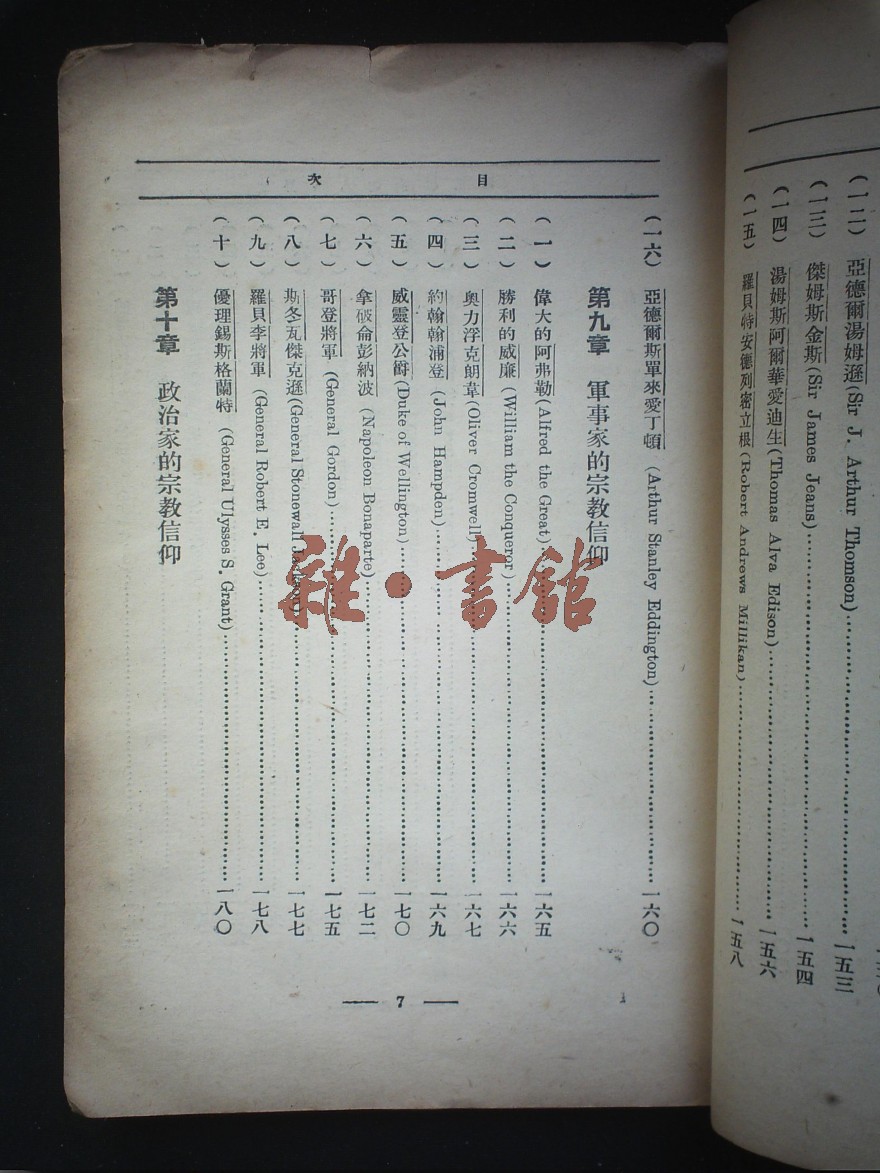 (一二) 亞德爾湯姆遜 (Sir J. Arthur Thomson)……一五三
(一三) 傑姆斯金斯 (Sir James Jeans)……一五四
(一四) 湯姆斯阿爾華愛迪生 (Thomas Alva Edison)……一五六
(一五) 羅貝特安德列密立根 (Robert Andrews Millikan)……一五八
目次
(一六) 亞德爾斯單來愛丁頓 (Arthur Stanley Eddington)……一六〇
第九章 軍事家的宗教信仰
(一) 偉大的阿弗勒 (Alfred the Great)……一六五
(二) 勝利的威廉 (William the Conqueror)……一六六
(三) 奧力浮克朗韋 (Oliver Cromwell)……一六七
(四) 約翰翰浦登 (John Hampden)……一六九
(五) 威靈登公爵 (Duke of Wellington)……一七〇
(六) 拿破侖彭納波 (Napoleon Bonaparte)……一七二
(七) 哥登將軍 (General Gordon)……一七五
(八) 斯冬瓦傑克遜 (General Stonewall Jackson)……一七七
(九) 羅貝李將軍 (General Robert E. Lee)……一七八
(十) 優理錫斯格蘭特 (General Ulysses S. Grant)……一八〇
第十章 政治家的宗教信仰
— 7 —
雜·書館